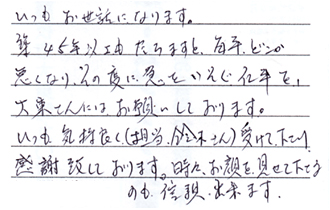 いつもお世話になります。
築45年以上たちますと、毎年、どこか
悪くなり、その度に急を
大東さんには、お願いしております。
いつも気持良く（担当、鈴木さん）受けて下さり、
感謝致しております。時々、お顔を見せて下さる
のも、信頼出来ます。